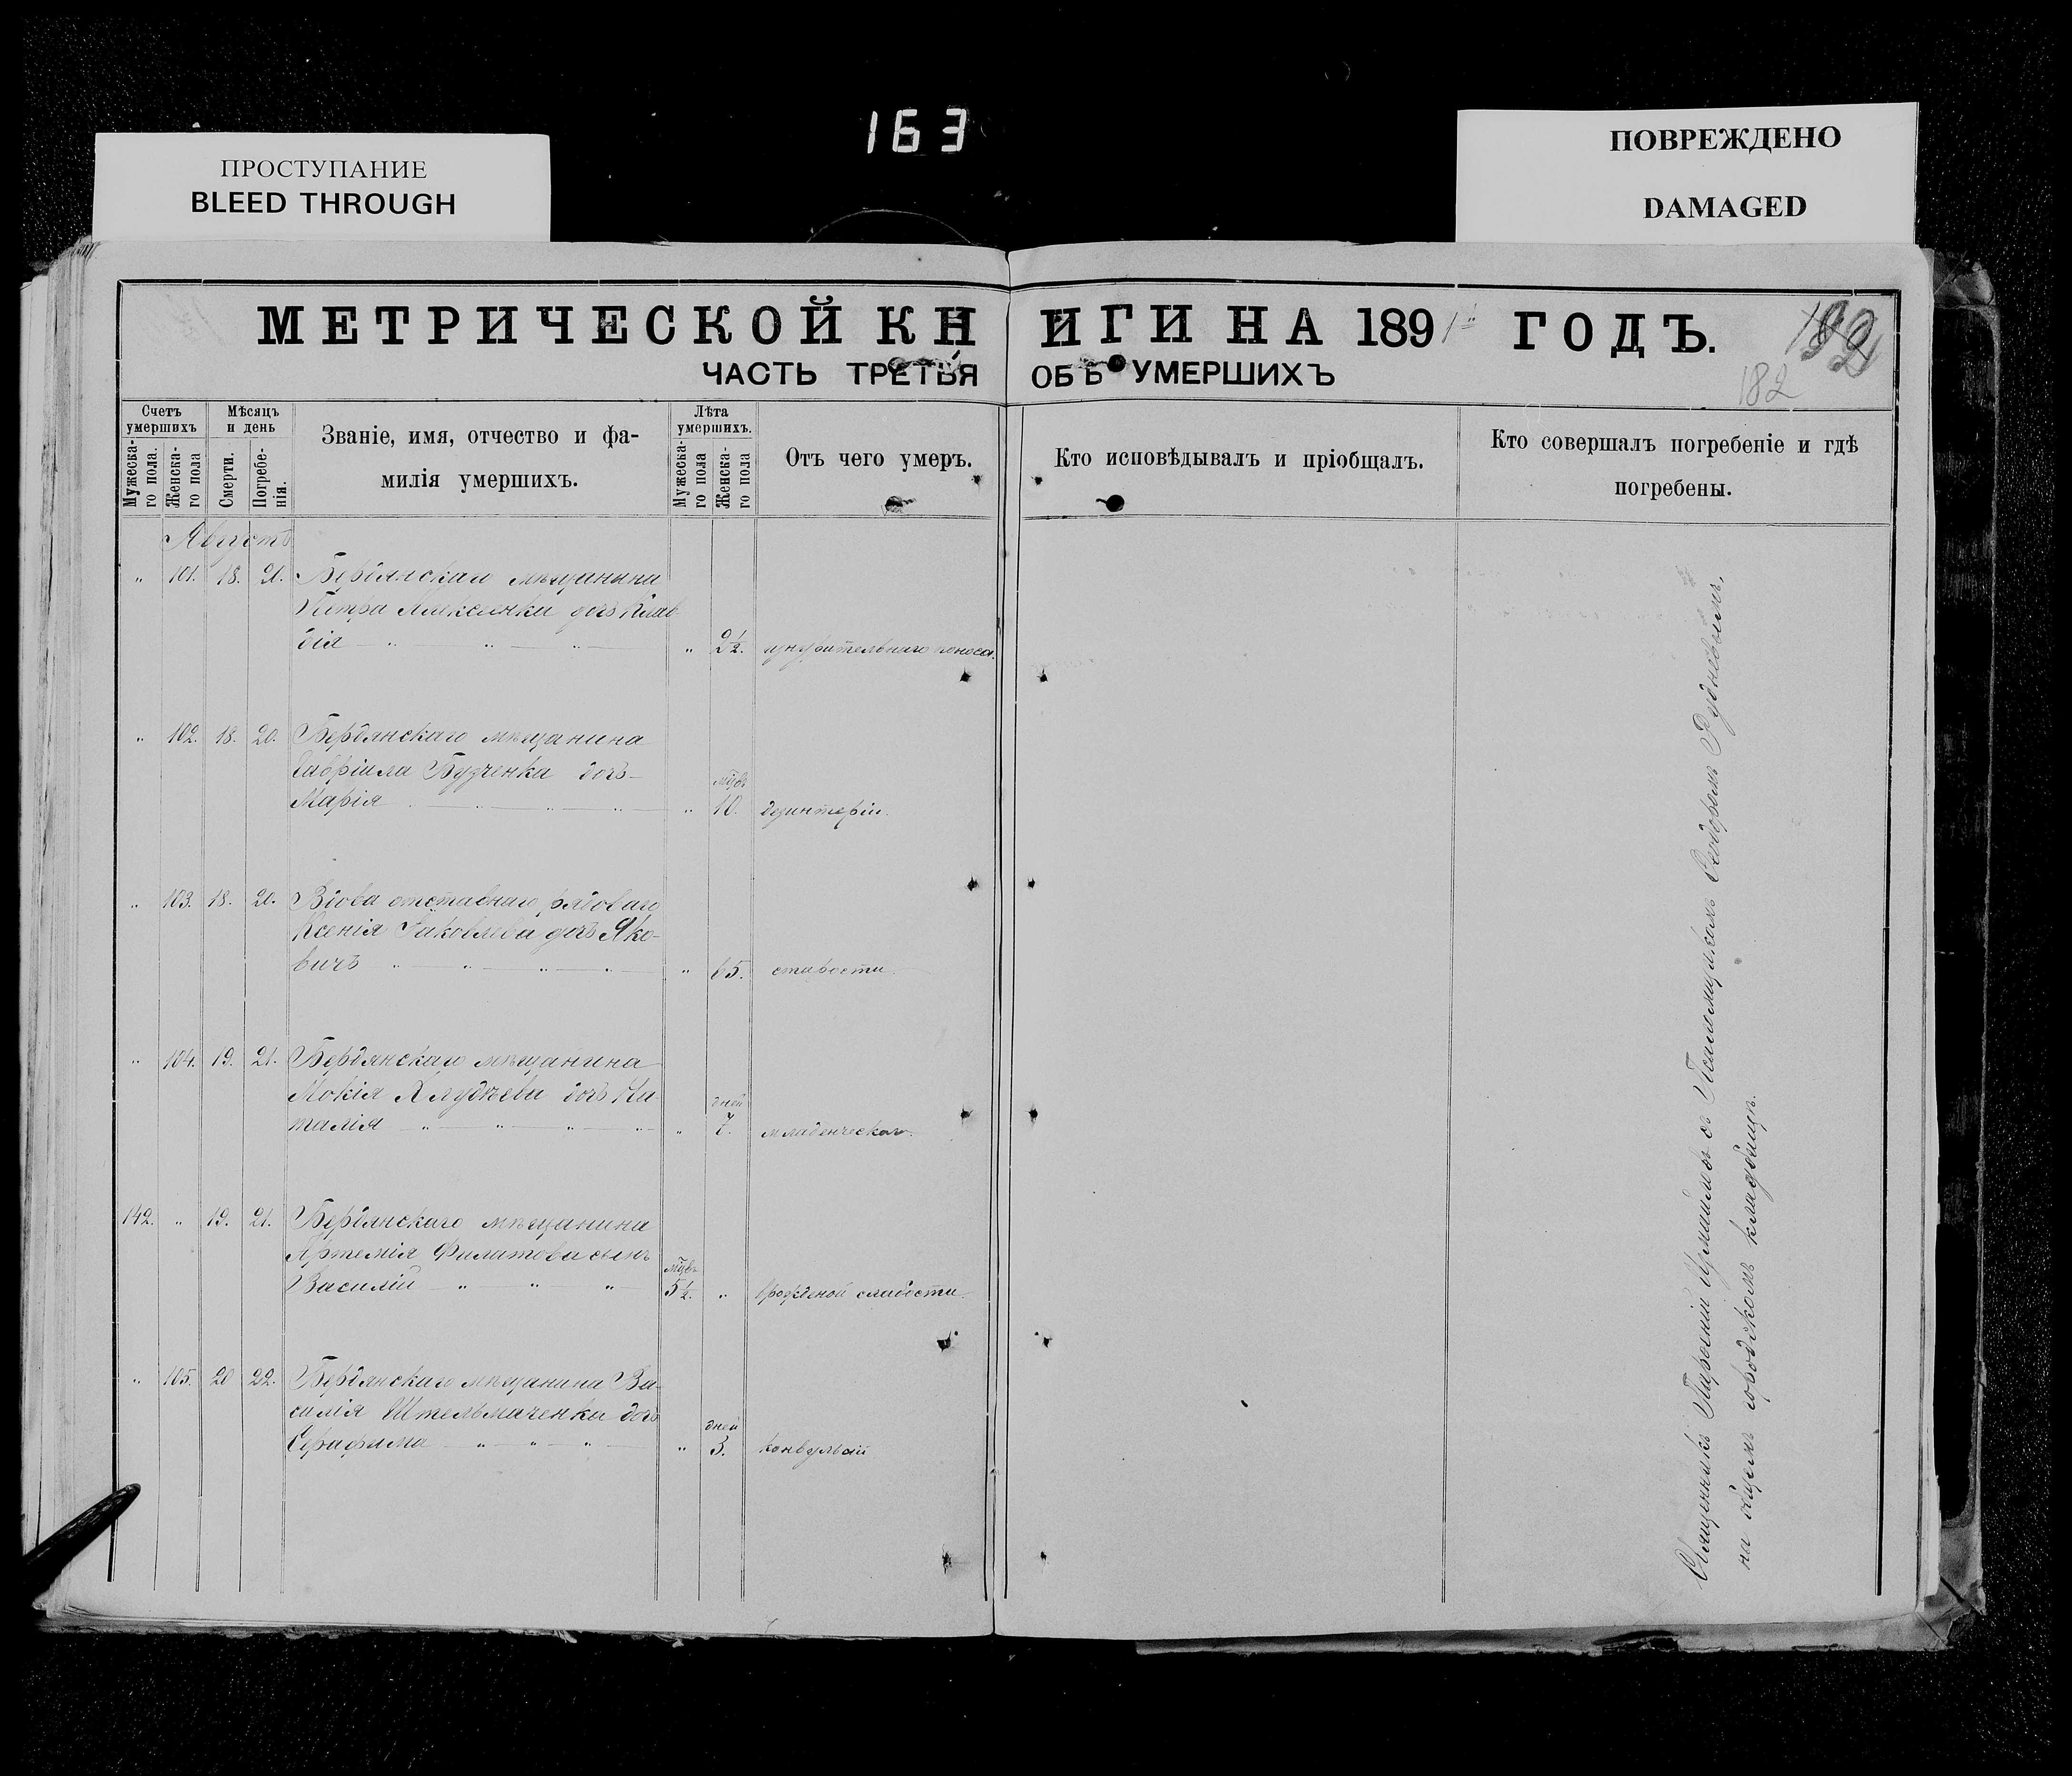 163
ПРОСТУПАНИЕ
BLEED THROUGH
ПОВРЕЖДЕНО
DAMAGED
МЕТРИЧЕСКОЙ КНИГИ НА 1891 ГОДЪ.
182
ЧАСТЬ ТРЕТЬЯ ОБЪ УМЕРШИХЪ
Счетъ умершихъ
Мужеска-го пола.
Женска-го пола
Мѣсяцъ и день
Смерти.
Погребе-нія.
Званіе, имя, отчество и фа-
милія умершихъ.
Лѣта умершихъ.
Мужеска-го пола
Женска-го пола
Отъ чего умеръ.
Кто исповѣдывалъ и пріобщалъ.
Кто совершалъ погребеніе и гдѣ
погребены.
Августъ
„ 101. 18. 21. Бердянскаго мѣщанина
Петра дочь Клав
дія „ 2½. изнурительнаго поноса.
„ 102. 18. 20. Бердянскаго мѣщанина
Гавріила Бузченка дочь
Марія „ мцвъ 10. дезинтеріи.
„ 103. 18. 20. Вдова отставнаго рядоваго
Ксенія Іаковлева дочь Яко-
вичъ „ 65. старости.
„ 104. 19. 21. Бердянскаго мѣщанина
Мокія дочь На
талія „ дней 7. младенческой.
142. „ 19. 21. Бердянскаго мѣщанина
Артемія Филатова сынъ
Василій мцвъ 5½. „ врожденой слабости.
„ 105. 20 22. Бердянскаго мѣщанина Ва-
силія Штельмаченка дочь
Серафима „ дней 3. конвульсій
Священникъ Парѳеній съ Псаломщикомъ Ѳеодоромъ Рудневымъ,
на общемъ городскомъ кладбищѣ.